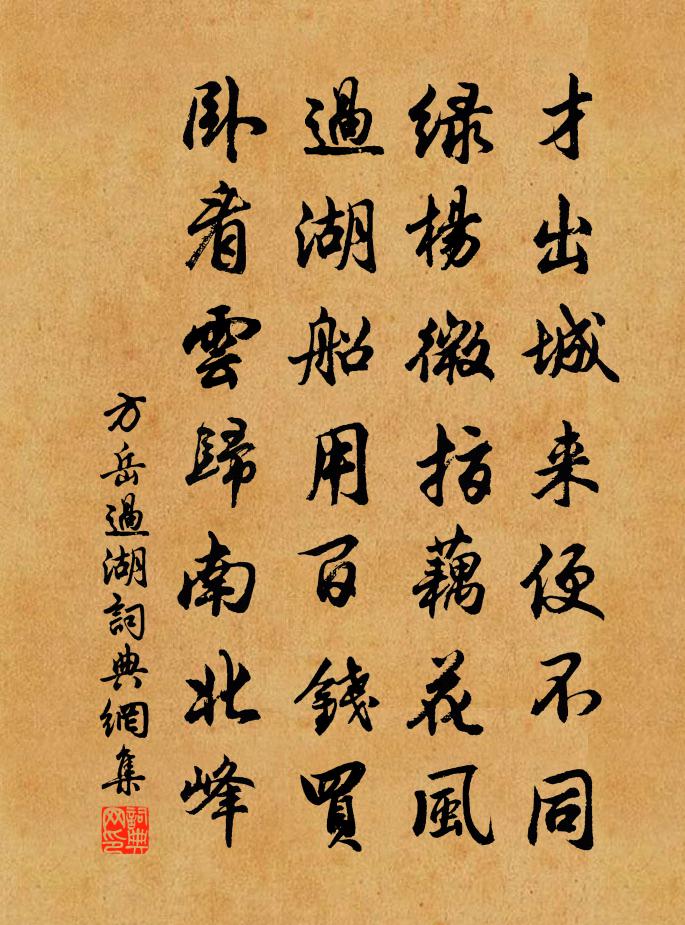 才出城来便不同
绿楊微指藕花風
過湖船用百錢買
卧看雲歸南北峰
方岳過湖詞典網集
詞典网印